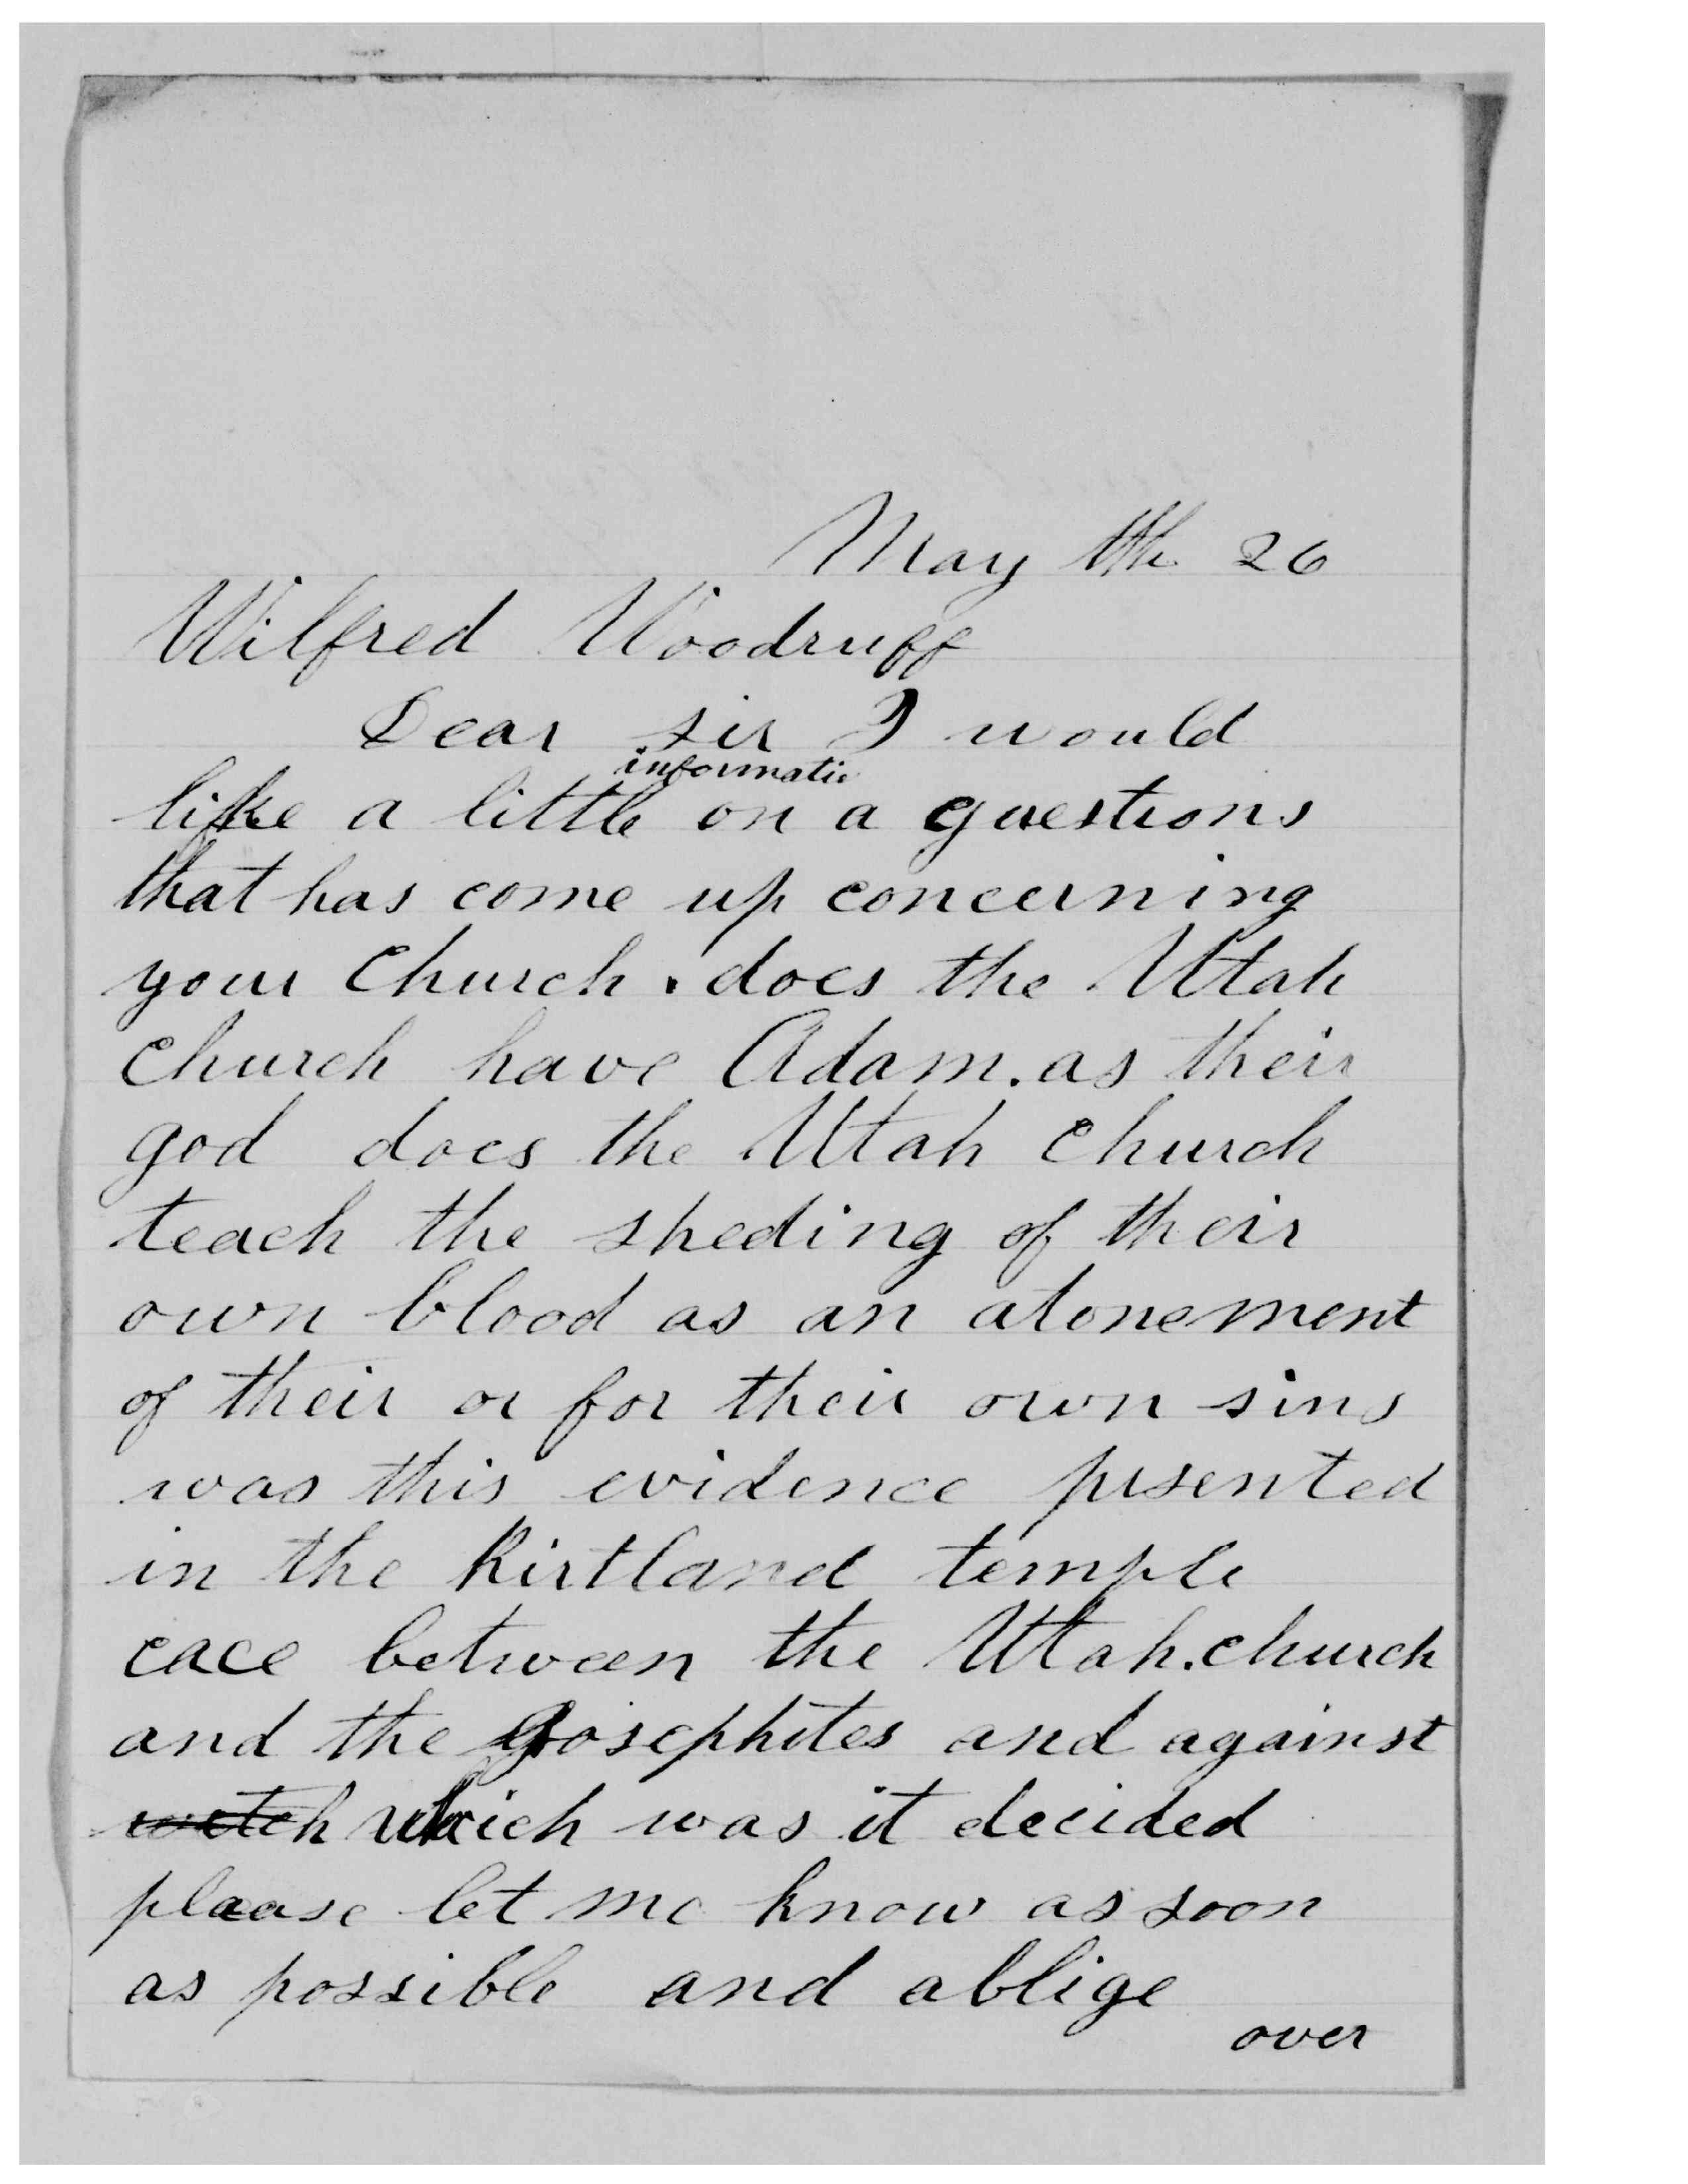 May th 26
Wilfred Woodruff
Dear sir I would
informatio
like a little on a questions
that has come up concerning
your church. does the Utah
church have Adam. as their
god does the Utah church
teach the sheding of their
own blood as an atonement
of their or for their own sins
was this evidence prsented
in the Kirtland temple
cace between the Utah. church
and the Josephites and against
which was it decided
pleaase let me know as soon
as possible and ablige
over